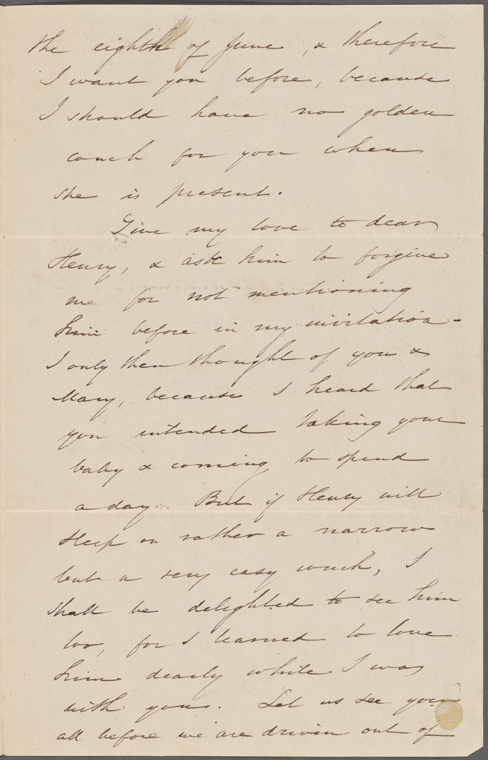 the eighth of June, & therefore
I want you before, because
I should have no golden
couch for you when
she is present.
Give my love to dear
Henry, & ask him to forgive
me for not mentioning
him before in my invitation -
I only then thought of you &
Mary, because I heard that
you intended taking your
baby & coming to spend
a day. But if Henry will
sleep on rather a narrow
but a very easy couch, I
shall be delighted to see him
too, for I learned to love
him dearly while I was
with you. Let us see you
all before we are driven out of